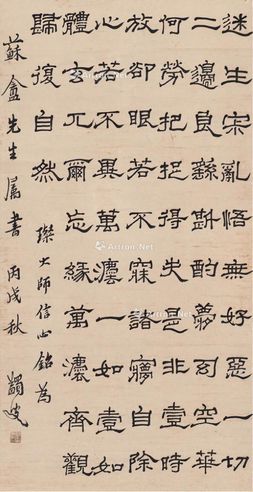 迷生宋亂悟無好惡一切
二邊良繇斟酌夢幻空華
何勞把捉得失是非壹時
放卻眼若不寐諸㝱自除
心若不異萬灋一如壹如
體玄兀爾忘緣萬灋齊觀
歸復自然
璨大師信心銘為
蘇盦先生屬書 丙戌秋 蠲叟
Artron.Net